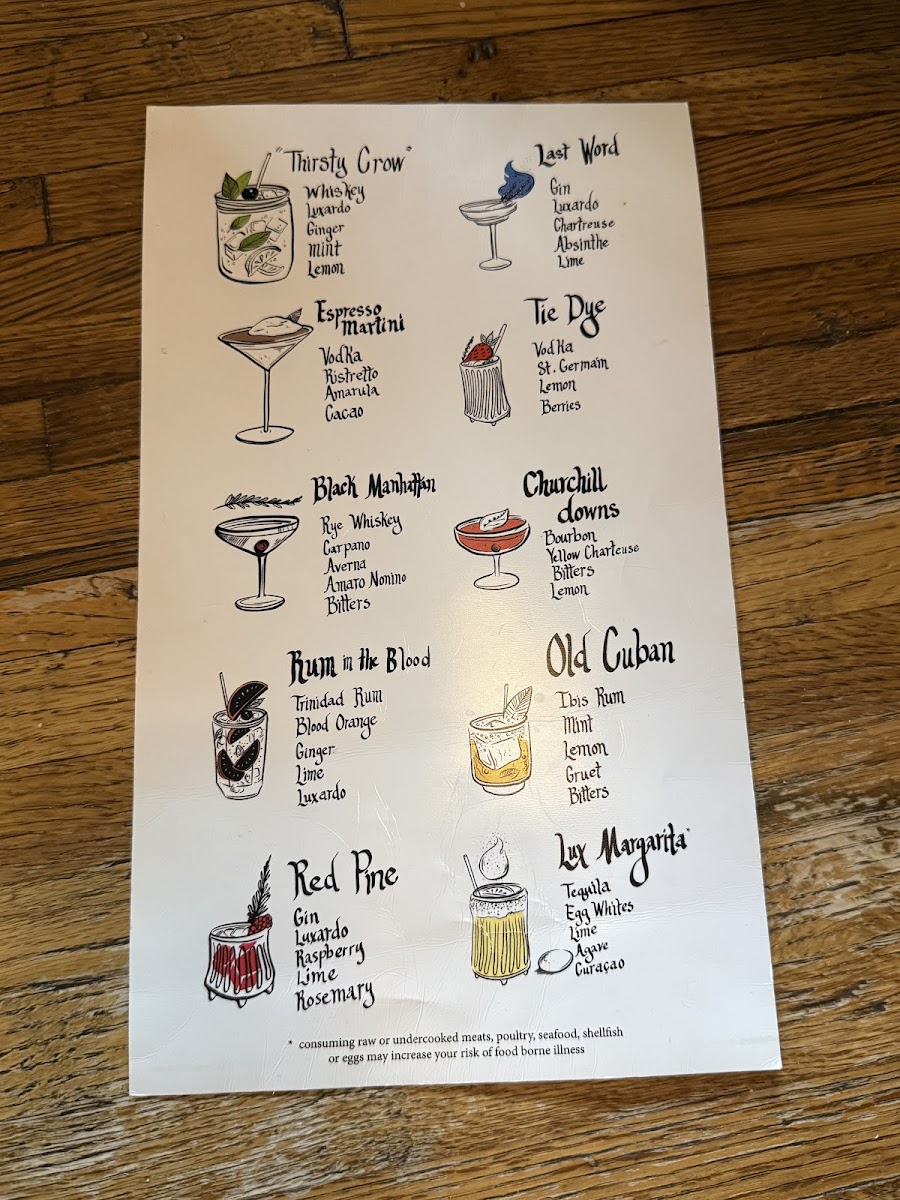 "Thirsty Crow"
Whiskey
Luxardo
Ginger
Mint
Lemon
Last Word
Gin
Luxardo
Chartreuse
Absinthe
Lime
Espresso
Martini
Vodka
Ristretto
Amarula
Cacao
Tie Dye
Vodka
St. Germain
Lemon
Berries
Black Manhattan
Rye Whiskey
Carpano
Averna
Amaro Nonino
Bitters
Churchill
downs
Bourbon
Yellow Charteuse
Bitters
Lemon
Rum in the Blood
Trinidad Rum
Blood Orange
Ginger
Lime
Luxardo
Old Cuban
Ibis Rum
Mint
Lemon
Gruet
Bitters
Red Pine
Gin
Luxardo
Raspberry
Lime
Rosemary
Lux Margarita*
Tequila
Egg Whites
Lime
Agave
Curaçao
* consuming raw or undercooked meats, poultry, seafood, shellfish
or eggs may increase your risk of food borne illness